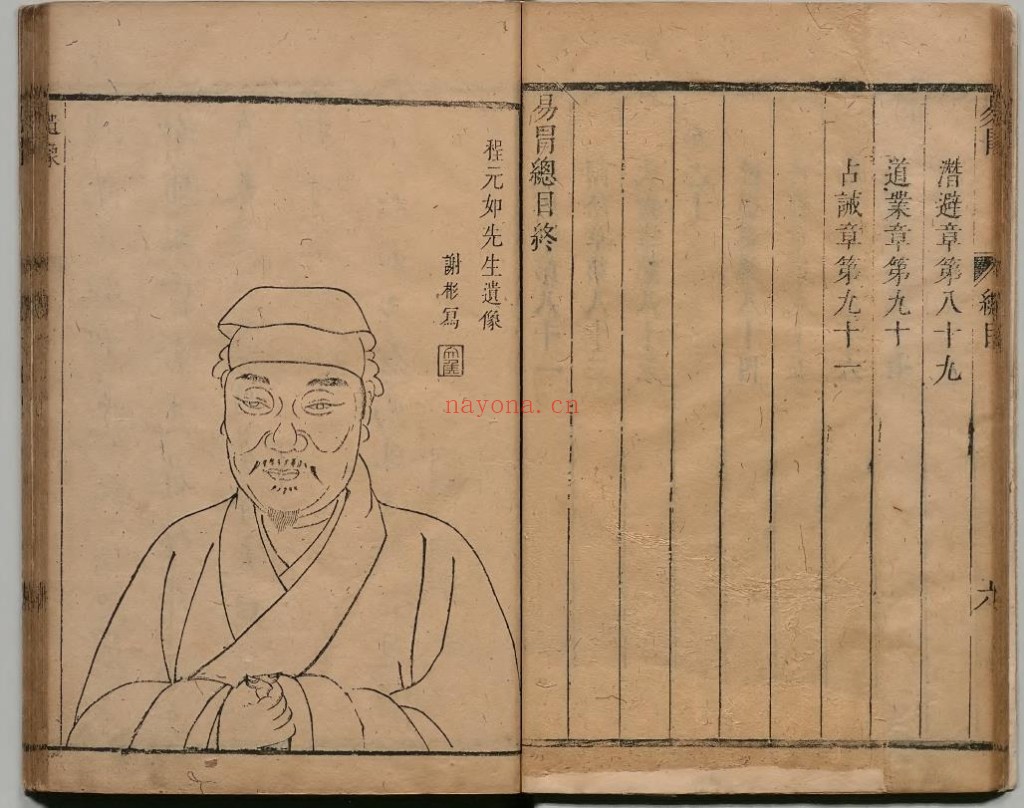 易冒
總目
六
潛避章第八十九
道業章第九十
占誡章第九十一
易冒總目終
程元如先生遺像
謝彬寫
遺像
nayona.cn